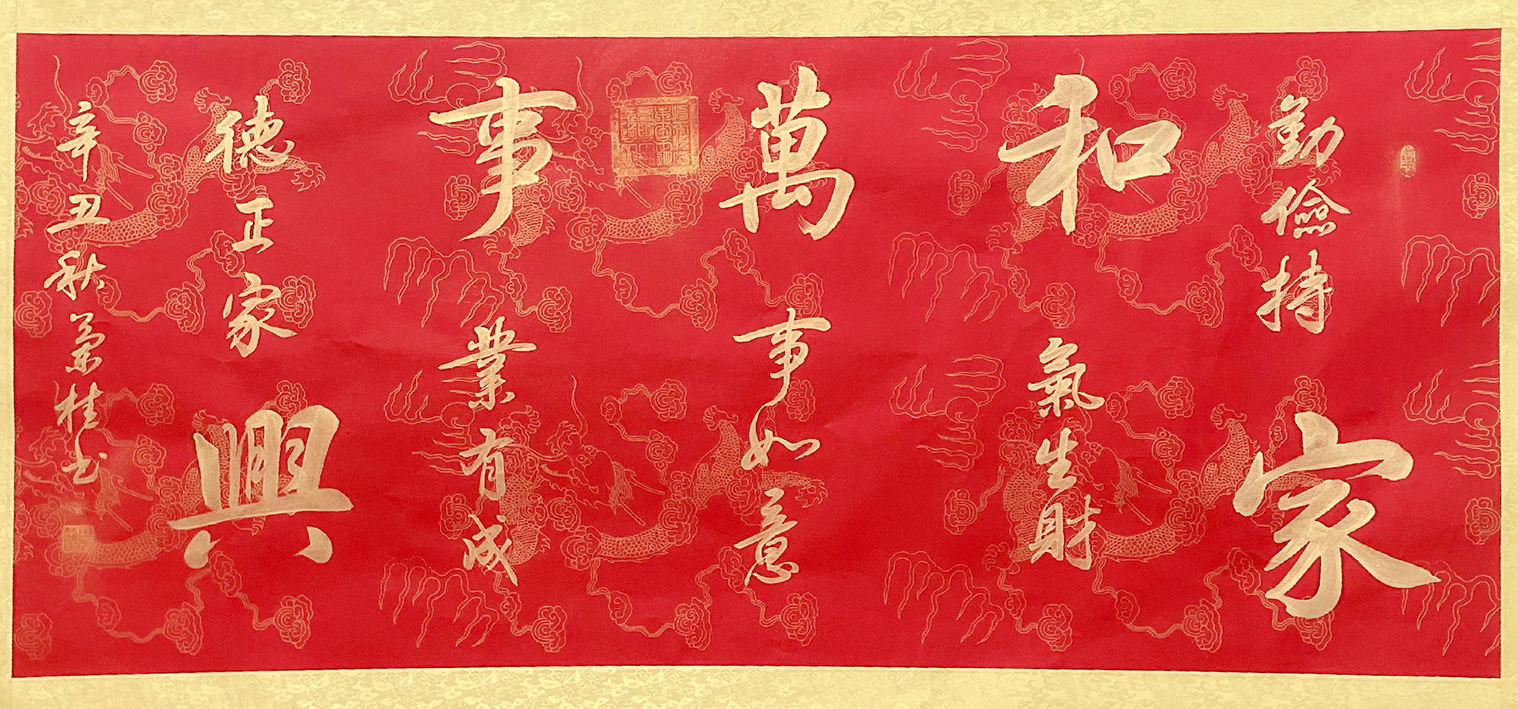 勤儉持家
和氣生財
萬事如意
事業有成
德正家興
辛丑秋榮桂书